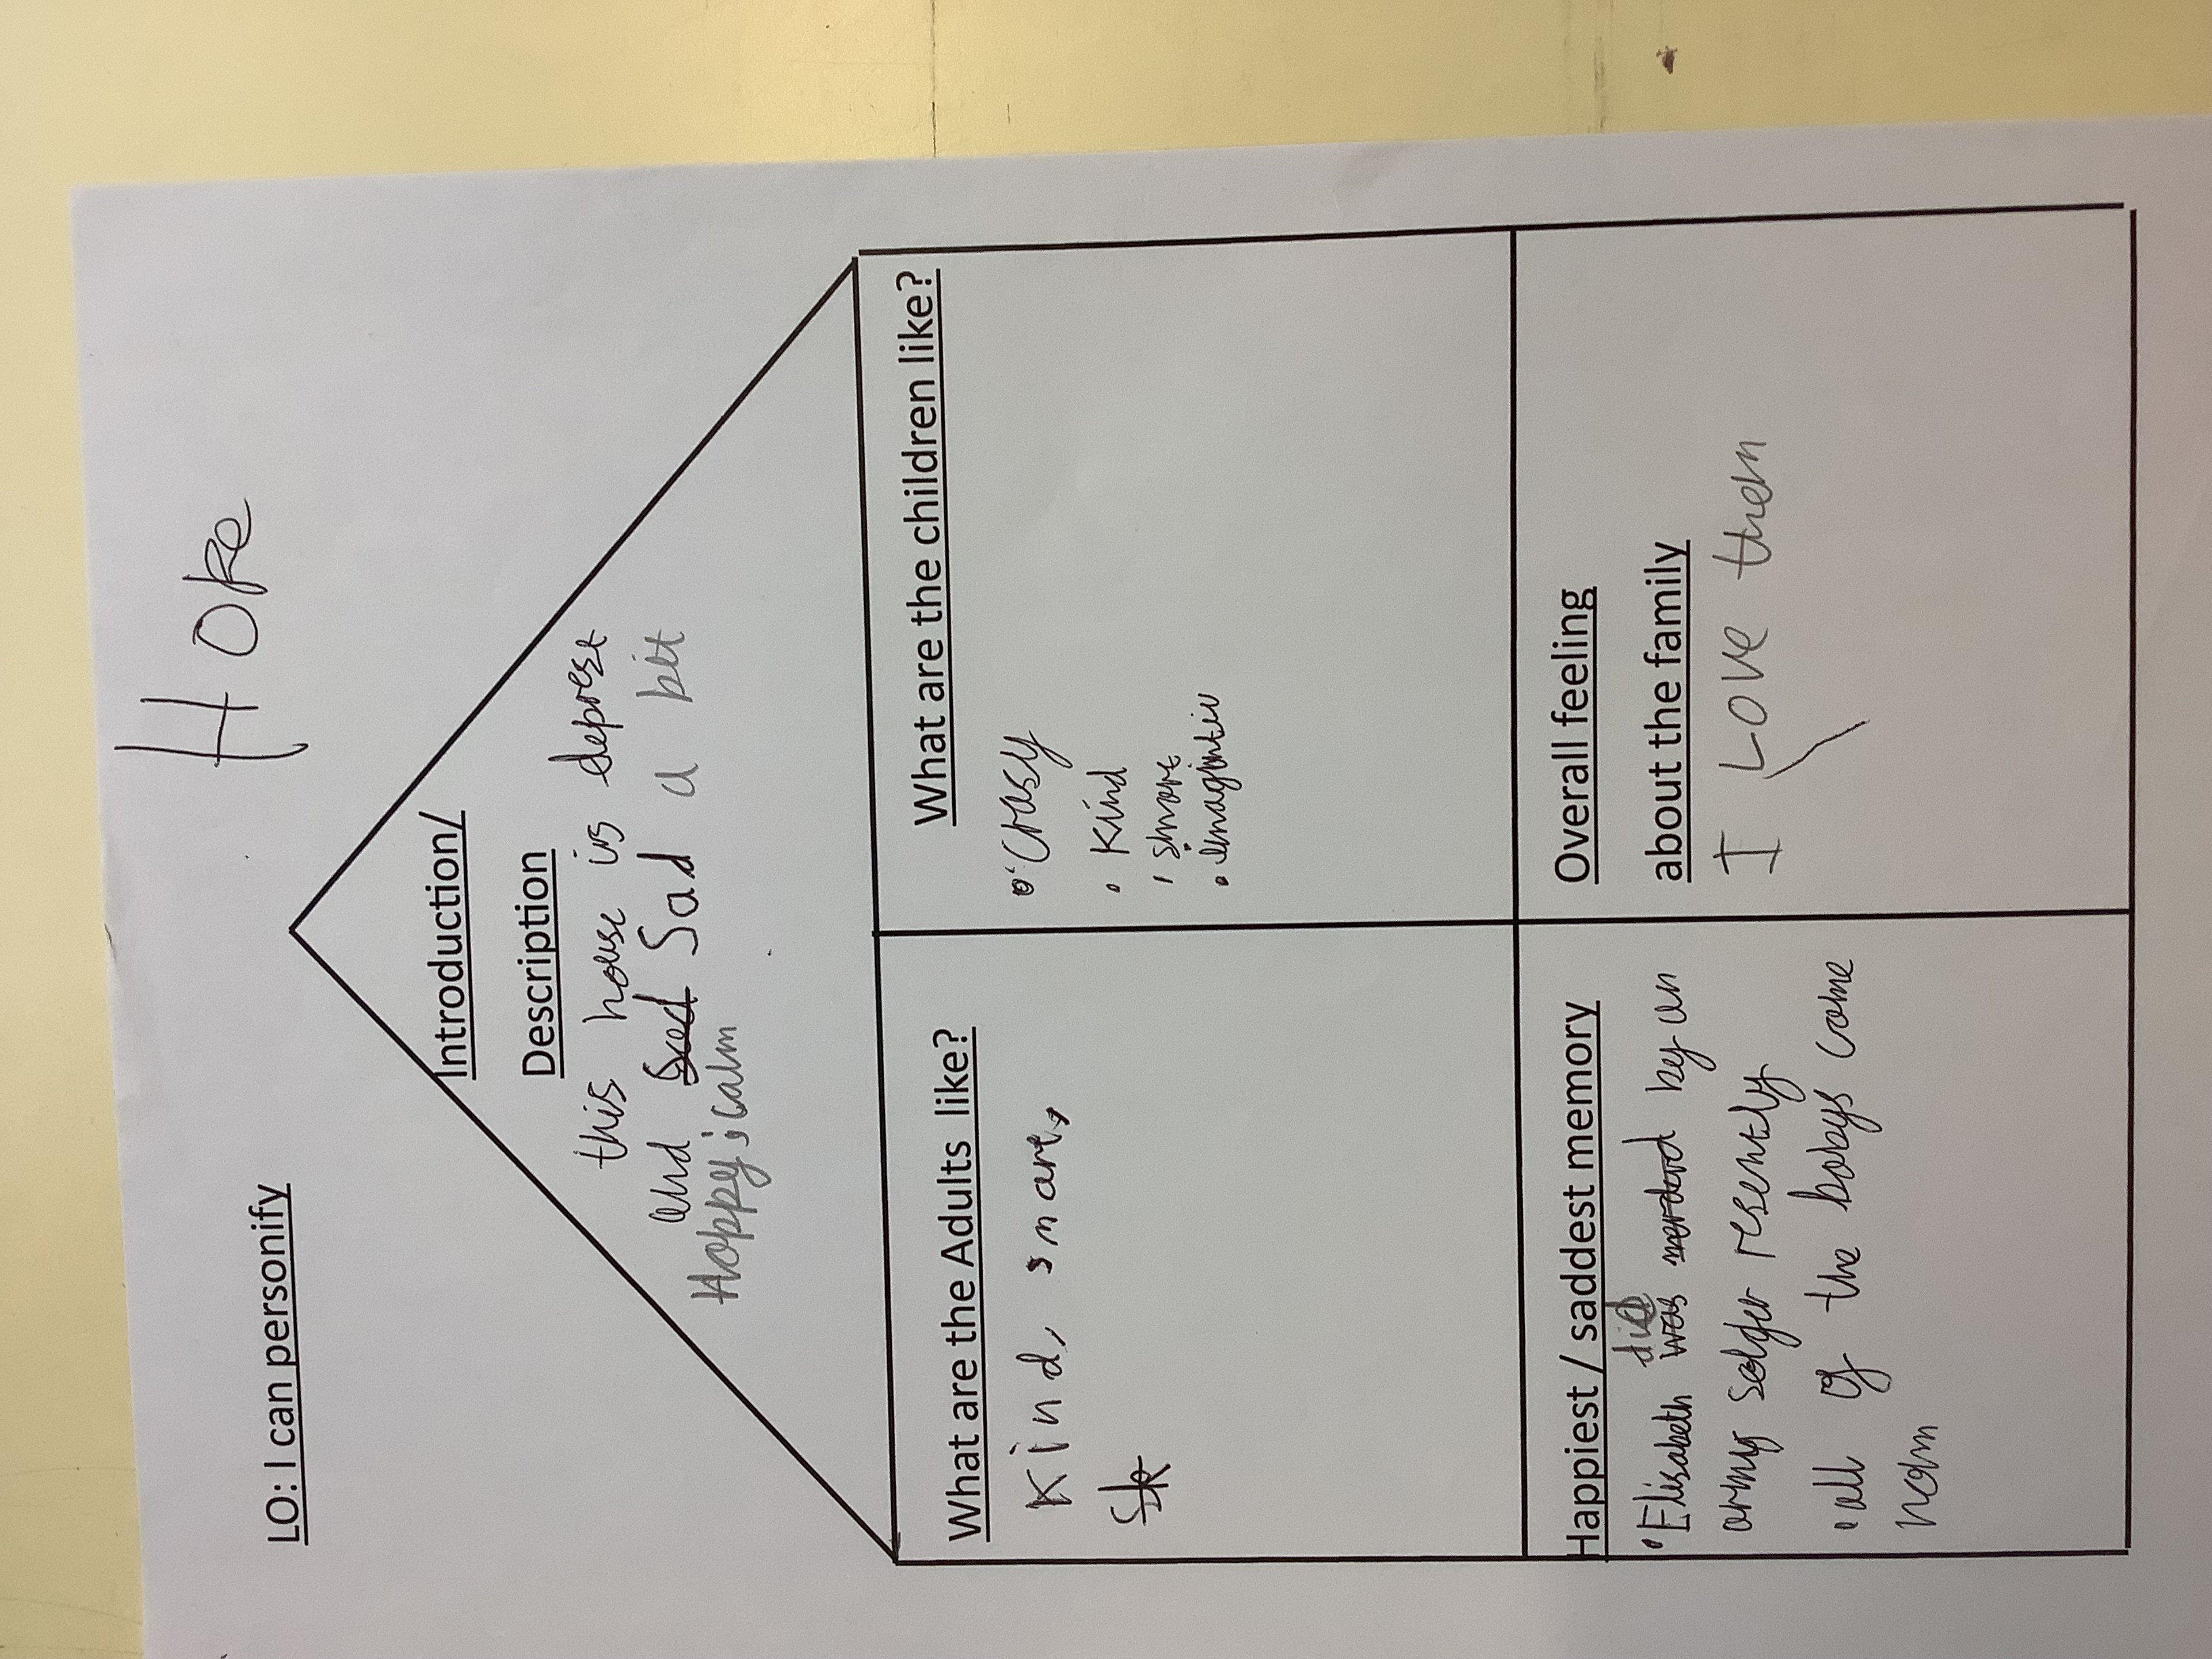 LO: I can personify
Hope
Introduction/
Description
this house is deprest
and Sad Sad a bit
Happy; calm
What are the Adults like?
Kind, smart,
What are the children like?
• Crasy
• Kind
• smart
• imagintiv
Happiest / saddest memory
did
• Elisabeth was merderd by an
army solger resently
• all of the babys come
Overall feeling
about the family
I Love them